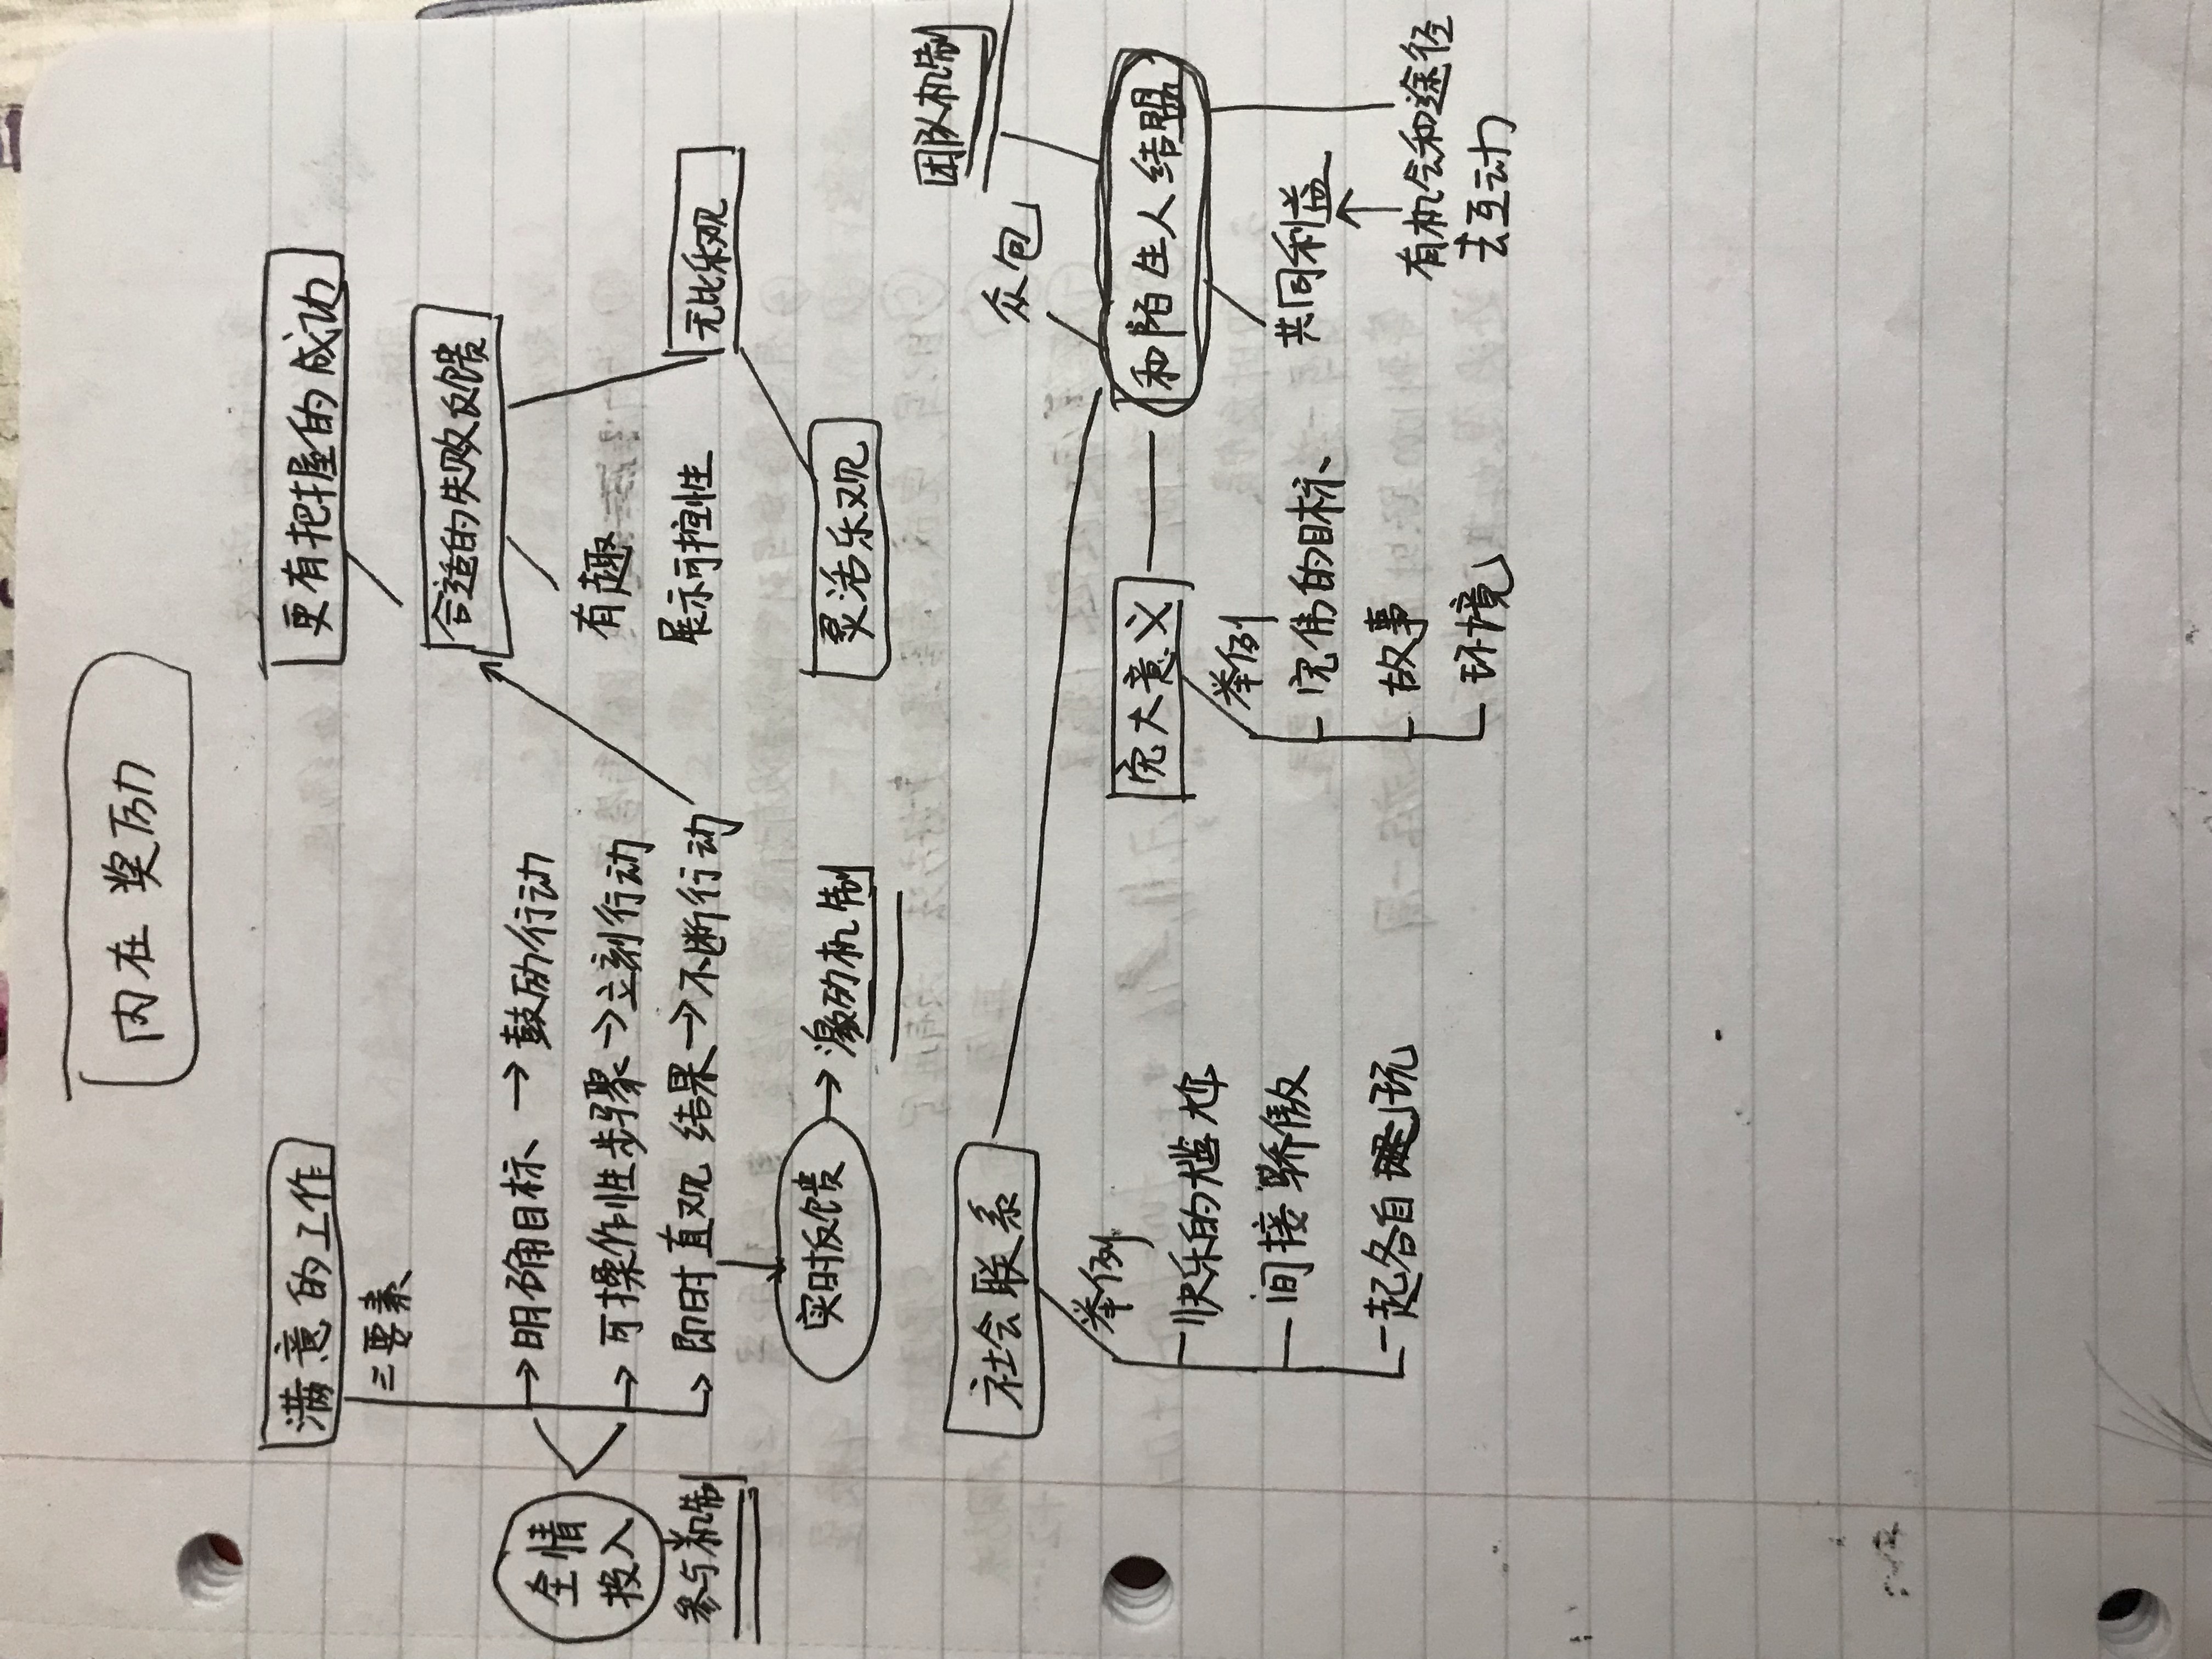 内在奖励
满意的工作
三要素
全情
投入
参与机制
明确目标 → 鼓励行动
可操作性步骤 → 立刻行动
即时直观 结果 → 不断行动
实时反馈 → 激励机制
更有把握的成功
合适的失败反馈
有趣
展示可控性
无比乐观
灵活乐观
社会联系
举例
快乐的尴尬
间接骄傲
一起各自玩
团队机制
众包
和陌生人结盟
宏大意义
举例
宏伟的目标
故事
环境
共同利益
有机会和途径
去互动